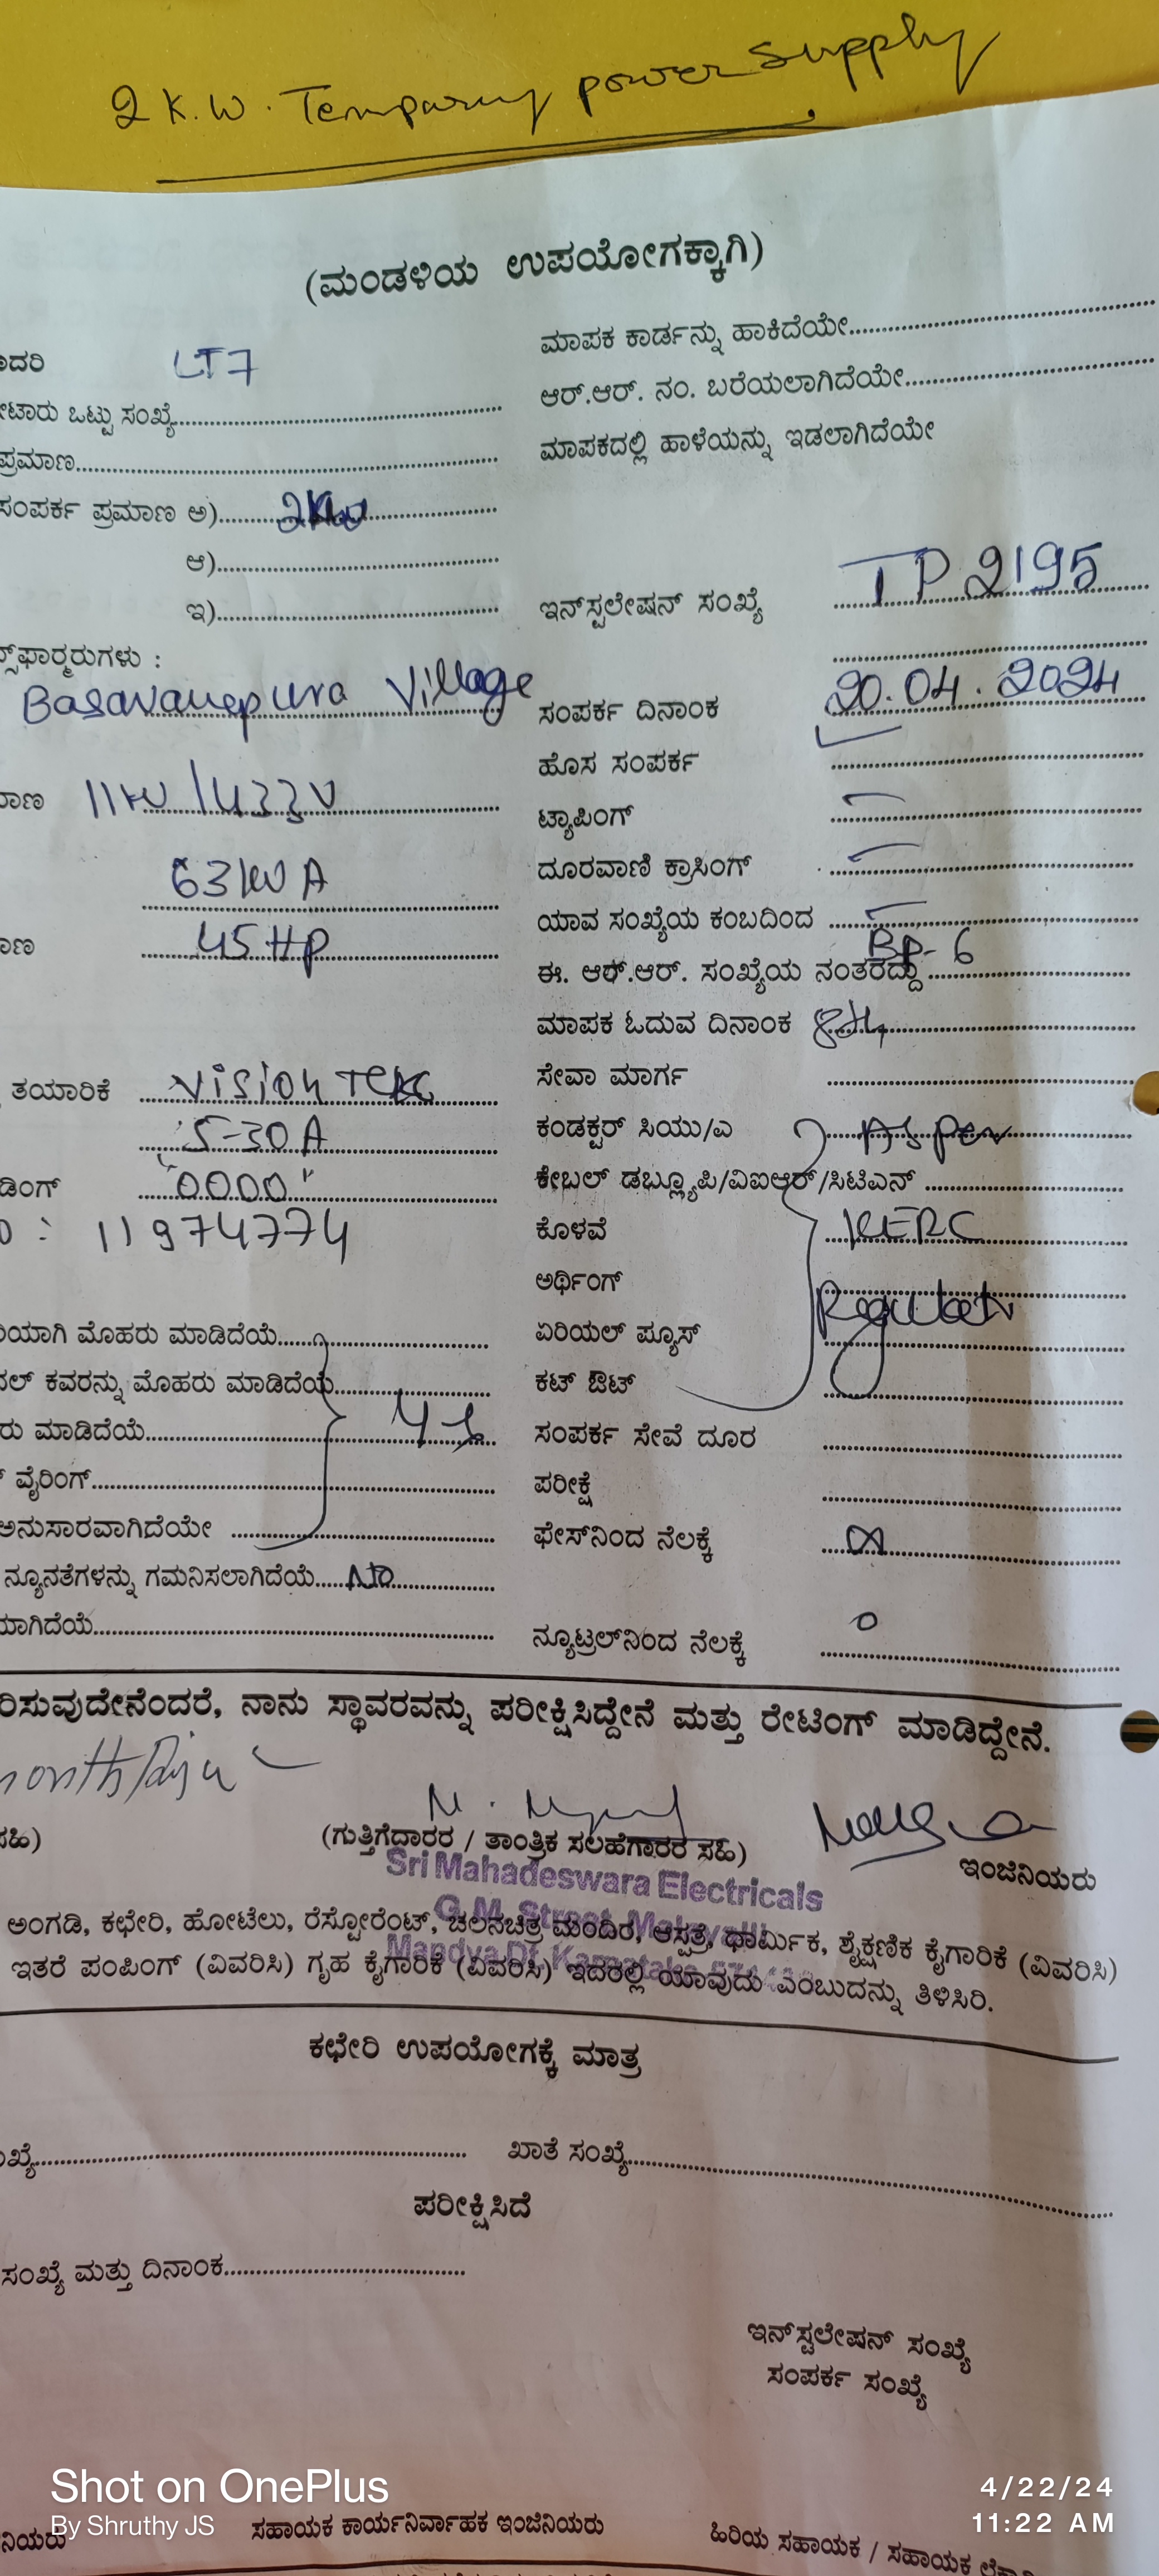 2 K.W. Temparury power supply
(ಮಂಡಳಿಯ ಉಪಯೋಗಕ್ಕಾಗಿ)
ಮಾಪಕ ಕಾರ್ಡನ್ನು ಹಾಕಿದೆಯೇ
ದರಿ LT7
ಆರ್.ಆರ್. ನಂ. ಬರೆಯಲಾಗಿದೆಯೇ
ಟಾರು ಒಟ್ಟು ಸಂಖ್ಯೆ
ಮಾಪಕದಲ್ಲಿ ಹಾಳೆಯನ್ನು ಇಡಲಾಗಿದೆಯೇ
ಪ್ರಮಾಣ
ಸಂಪರ್ಕ ಪ್ರಮಾಣ ಅ) 2KW
ಆ)
ಇ)
ಇನ್‌ಸ್ಟಲೇಷನ್ ಸಂಖ್ಯೆ TP 2195
ಸ್‌ಫಾರ್ಮರುಗಳು :
Basavanepura Village
ಸಂಪರ್ಕ ದಿನಾಂಕ 20.04.2024
ಹೊಸ ಸಂಪರ್ಕ
ಮಾಣ 11KV/433V
ಟ್ಯಾಪಿಂಗ್
63KVA
ದೂರವಾಣಿ ಕ್ರಾಸಿಂಗ್
ಯಾವ ಸಂಖ್ಯೆಯ ಕಂಬದಿಂದ
ಾಣ 45HP
ಈ. ಆರ್.ಆರ್. ಸಂಖ್ಯೆಯ ನಂತರದ್ದು BP-6
ಮಾಪಕ ಓದುವ ದಿನಾಂಕ 8th
ಸೇವಾ ಮಾರ್ಗ
ತಯಾರಿಕೆ Vision Tek
ಕಂಡಕ್ಟರ್ ಸಿಯು/ಎ As Per
5-30A
ಕೇಬಲ್ ಡಬ್ಲ್ಯೂಪಿ/ವಿಐಆರ್/ಸಿಟಿಎನ್
ಡಿಂಗ್ "0000"
ಕೊಳವೆ KERC
: 11974774
ಅರ್ಥಿಂಗ್ Regulation
ಏರಿಯಲ್ ಫ್ಯೂಸ್
ಯಾಗಿ ಮೊಹರು ಮಾಡಿದೆಯೆ
ಕಟ್ ಔಟ್
ಲ್ ಕವರನ್ನು ಮೊಹರು ಮಾಡಿದೆಯೆ
ರು ಮಾಡಿದೆಯೆ
ಸಂಪರ್ಕ ಸೇವೆ ದೂರ
ವೈರಿಂಗ್
ಪರೀಕ್ಷೆ
ಅನುಸಾರವಾಗಿದೆಯೇ
ಫೇಸ್‌ನಿಂದ ನೆಲಕ್ಕೆ ∞
ನ್ಯೂನತೆಗಳನ್ನು ಗಮನಿಸಲಾಗಿದೆಯೆ NO
ಯಾಗಿದೆಯೆ
ನ್ಯೂಟ್ರಲ್‌ನಿಂದ ನೆಲಕ್ಕೆ 0
ರಿಸುವುದೇನೆಂದರೆ, ನಾನು ಸ್ಥಾವರವನ್ನು ಪರೀಕ್ಷಿಸಿದ್ದೇನೆ ಮತ್ತು ರೇಟಿಂಗ್ ಮಾಡಿದ್ದೇನೆ.
ಸಹಿ)
(ಗುತ್ತಿಗೆದಾರರ / ತಾಂತ್ರಿಕ ಸಲಹೆಗಾರರ ಸಹಿ)
ಇಂಜಿನಿಯರು
Sri Mahadeswara Electricals
G.M. Street, Malavalli
Mandya Dt. Karnataka
ಅಂಗಡಿ, ಕಛೇರಿ, ಹೋಟೆಲು, ರೆಸ್ಟೋರೆಂಟ್, ಚಲನಚಿತ್ರ ಮಂದಿರ, ಆಸ್ಪತ್ರೆ, ಧಾರ್ಮಿಕ, ಶೈಕ್ಷಣಿಕ ಕೈಗಾರಿಕೆ (ವಿವರಿಸಿ)
ಇತರೆ ಪಂಪಿಂಗ್ (ವಿವರಿಸಿ) ಗೃಹ ಕೈಗಾರಿಕೆ (ವಿವರಿಸಿ) ಇದರಲ್ಲಿ ಯಾವುದು ಎಂಬುದನ್ನು ತಿಳಿಸಿರಿ.
ಕಛೇರಿ ಉಪಯೋಗಕ್ಕೆ ಮಾತ್ರ
ಖ್ಯೆ
ಖಾತೆ ಸಂಖ್ಯೆ
ಪರೀಕ್ಷಿಸಿದೆ
ಸಂಖ್ಯೆ ಮತ್ತು ದಿನಾಂಕ
ಇನ್‌ಸ್ಟಲೇಷನ್ ಸಂಖ್ಯೆ
ಸಂಪರ್ಕ ಸಂಖ್ಯೆ
Shot on OnePlus
By Shruthy JS
4/22/24
11:22 AM
ನಿಯರು
ಸಹಾಯಕ ಕಾರ್ಯನಿರ್ವಾಹಕ ಇಂಜಿನಿಯರು
ಹಿರಿಯ ಸಹಾಯಕ / ಸಹಾಯಕ